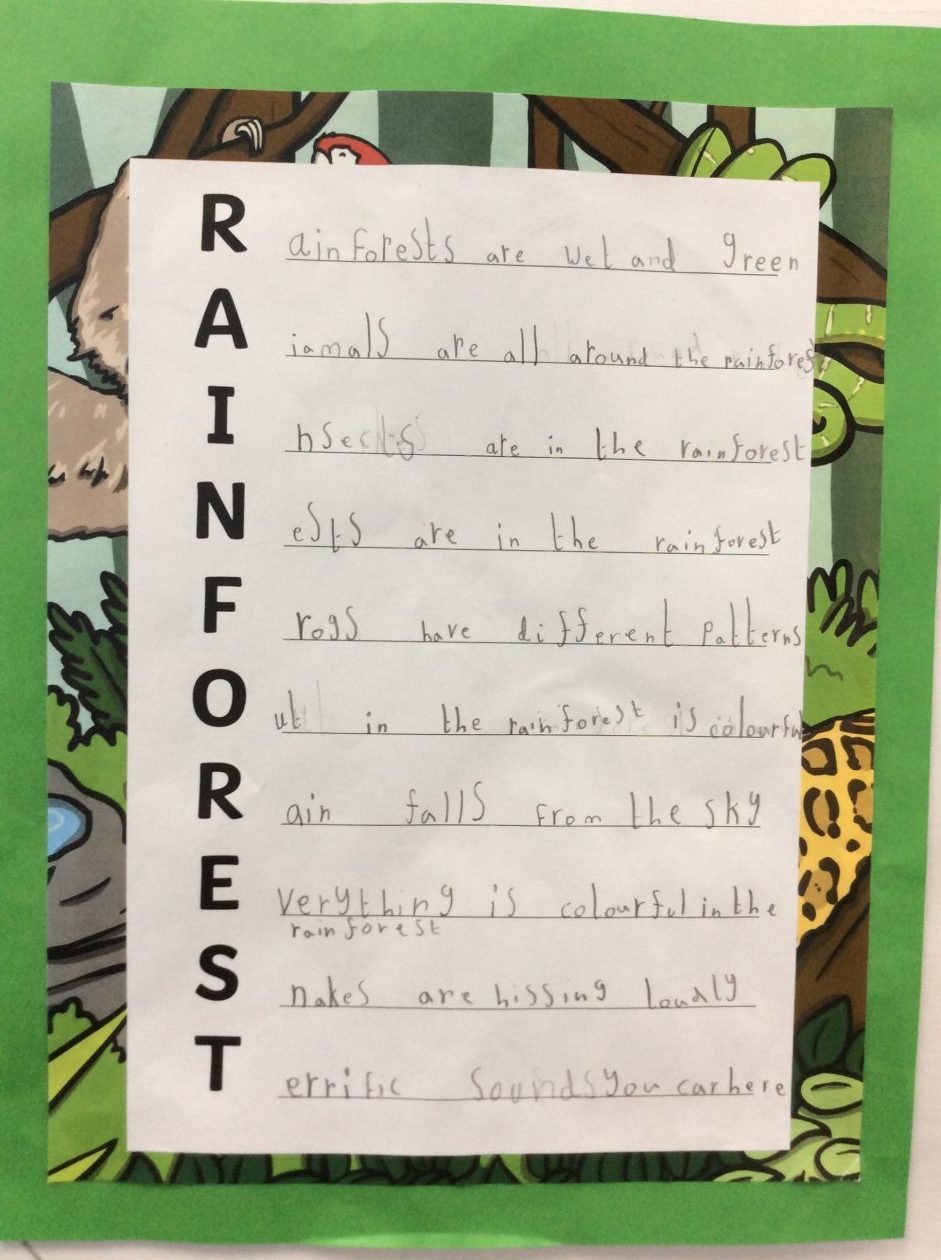 Rainforests are wet and green
Aiamals are all around the rainforest
Insects are in the rainforest
Nests are in the rainforest
Frogs have different patterns
Out in the rainforest is colourful
Rain falls from the sky
Everything is colourful in the
rainforest
Snakes are hissing loudly
Terrific sounds you can here